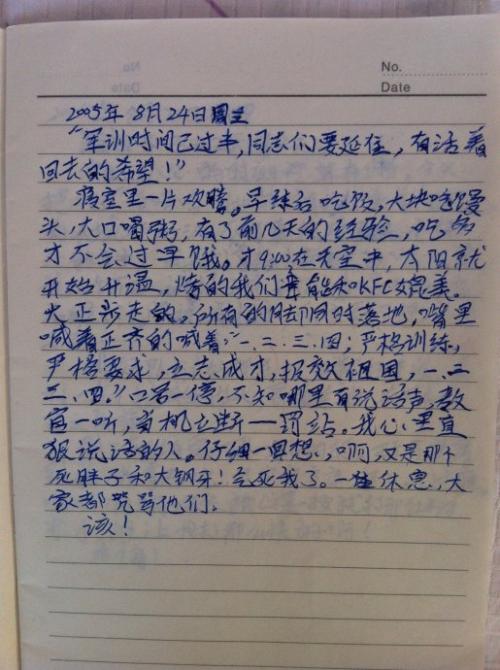 No.
Date
2005年 8月24日周三
"军训时间已过半,同志们要挺住,有活着
回去的希望!"
寝室里一片欢腾。早练后吃饭,大块吃馒
头,大口喝粥,有了前几天的经验,吃多
才不会过早饿。才9:00在天空中,太阳就
开始升温,烤的我们都能和KFC媲美。
大正步走的,所有的脚同时落地,嘴里
喊着正齐的喊着:"一.二.三.四,严格训练,
严格要求,立志成才,报效祖国,一.二
三.四。"口号一停,不知哪里有说话声,教
官一听,当机立断——罚站。我心里直
狠说话的人。仔细一回想,啊,又是那个
死胖子和大钢牙!气死我了。一往休息,大
家都咒骂他们。
该!